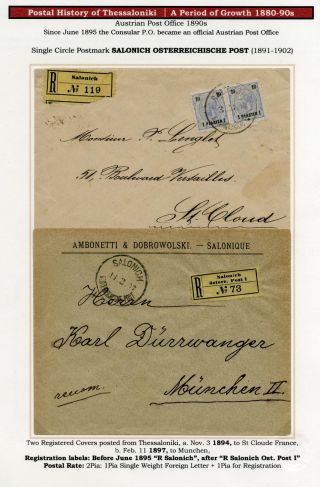 Postal History of Thessaloniki | A Period of Growth 1880-90s
Austrian Post Office 1890s
Since June 1895 the Consular P.O. became an official Austrian Post Office
Single Circle Postmark SALONICH OSTERREICHISCHE POST (1891-1902)
R Salonich
№ 119
10 10
1 PIASTER 1 1 PIASTER 1
Monsieur P. Lenglet
51, Boulevard Versailles.
St. Cloud
AMBONETTI & DOBROWOLSKI. — SALONIQUE
SALONICH
R Salonich
österr. Post I
№ 73
Herrn
Karl Dürrwanger
recom.
München II.
Two Registered Covers posted from Thessaloniki, a. Nov. 3 1894, to St Cloude France,
b. Feb. 11 1897, to Munchen,
Registration labels: Before June 1895 "R Salonich", after "R Salonich Ost. Post I"
Postal Rate: 2Pia: 1Pia Single Weight Foreign Letter + 1Pia for Registration